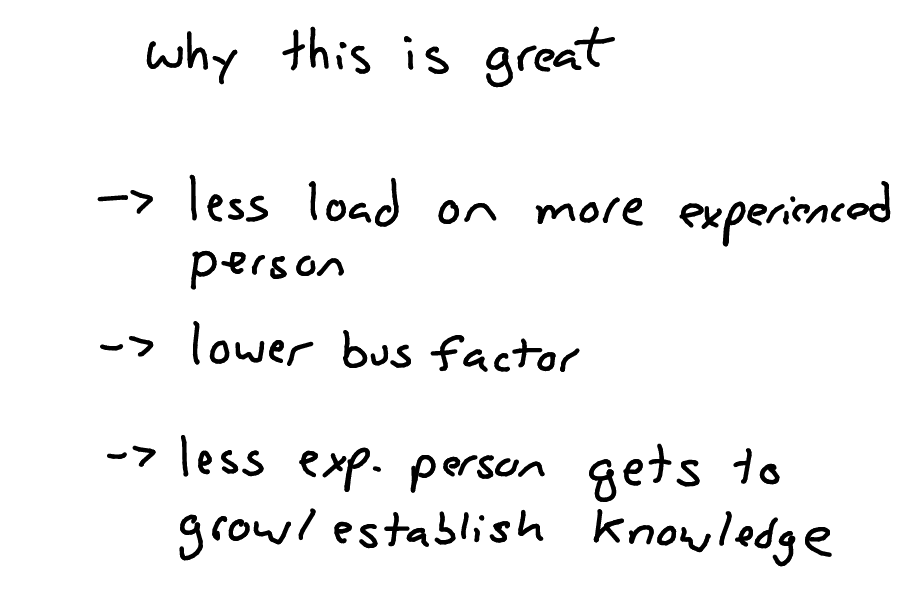 why this is great
-> less load on more experienced
person
-> lower bus factor
-> less exp. person gets to
grow/establish knowledge